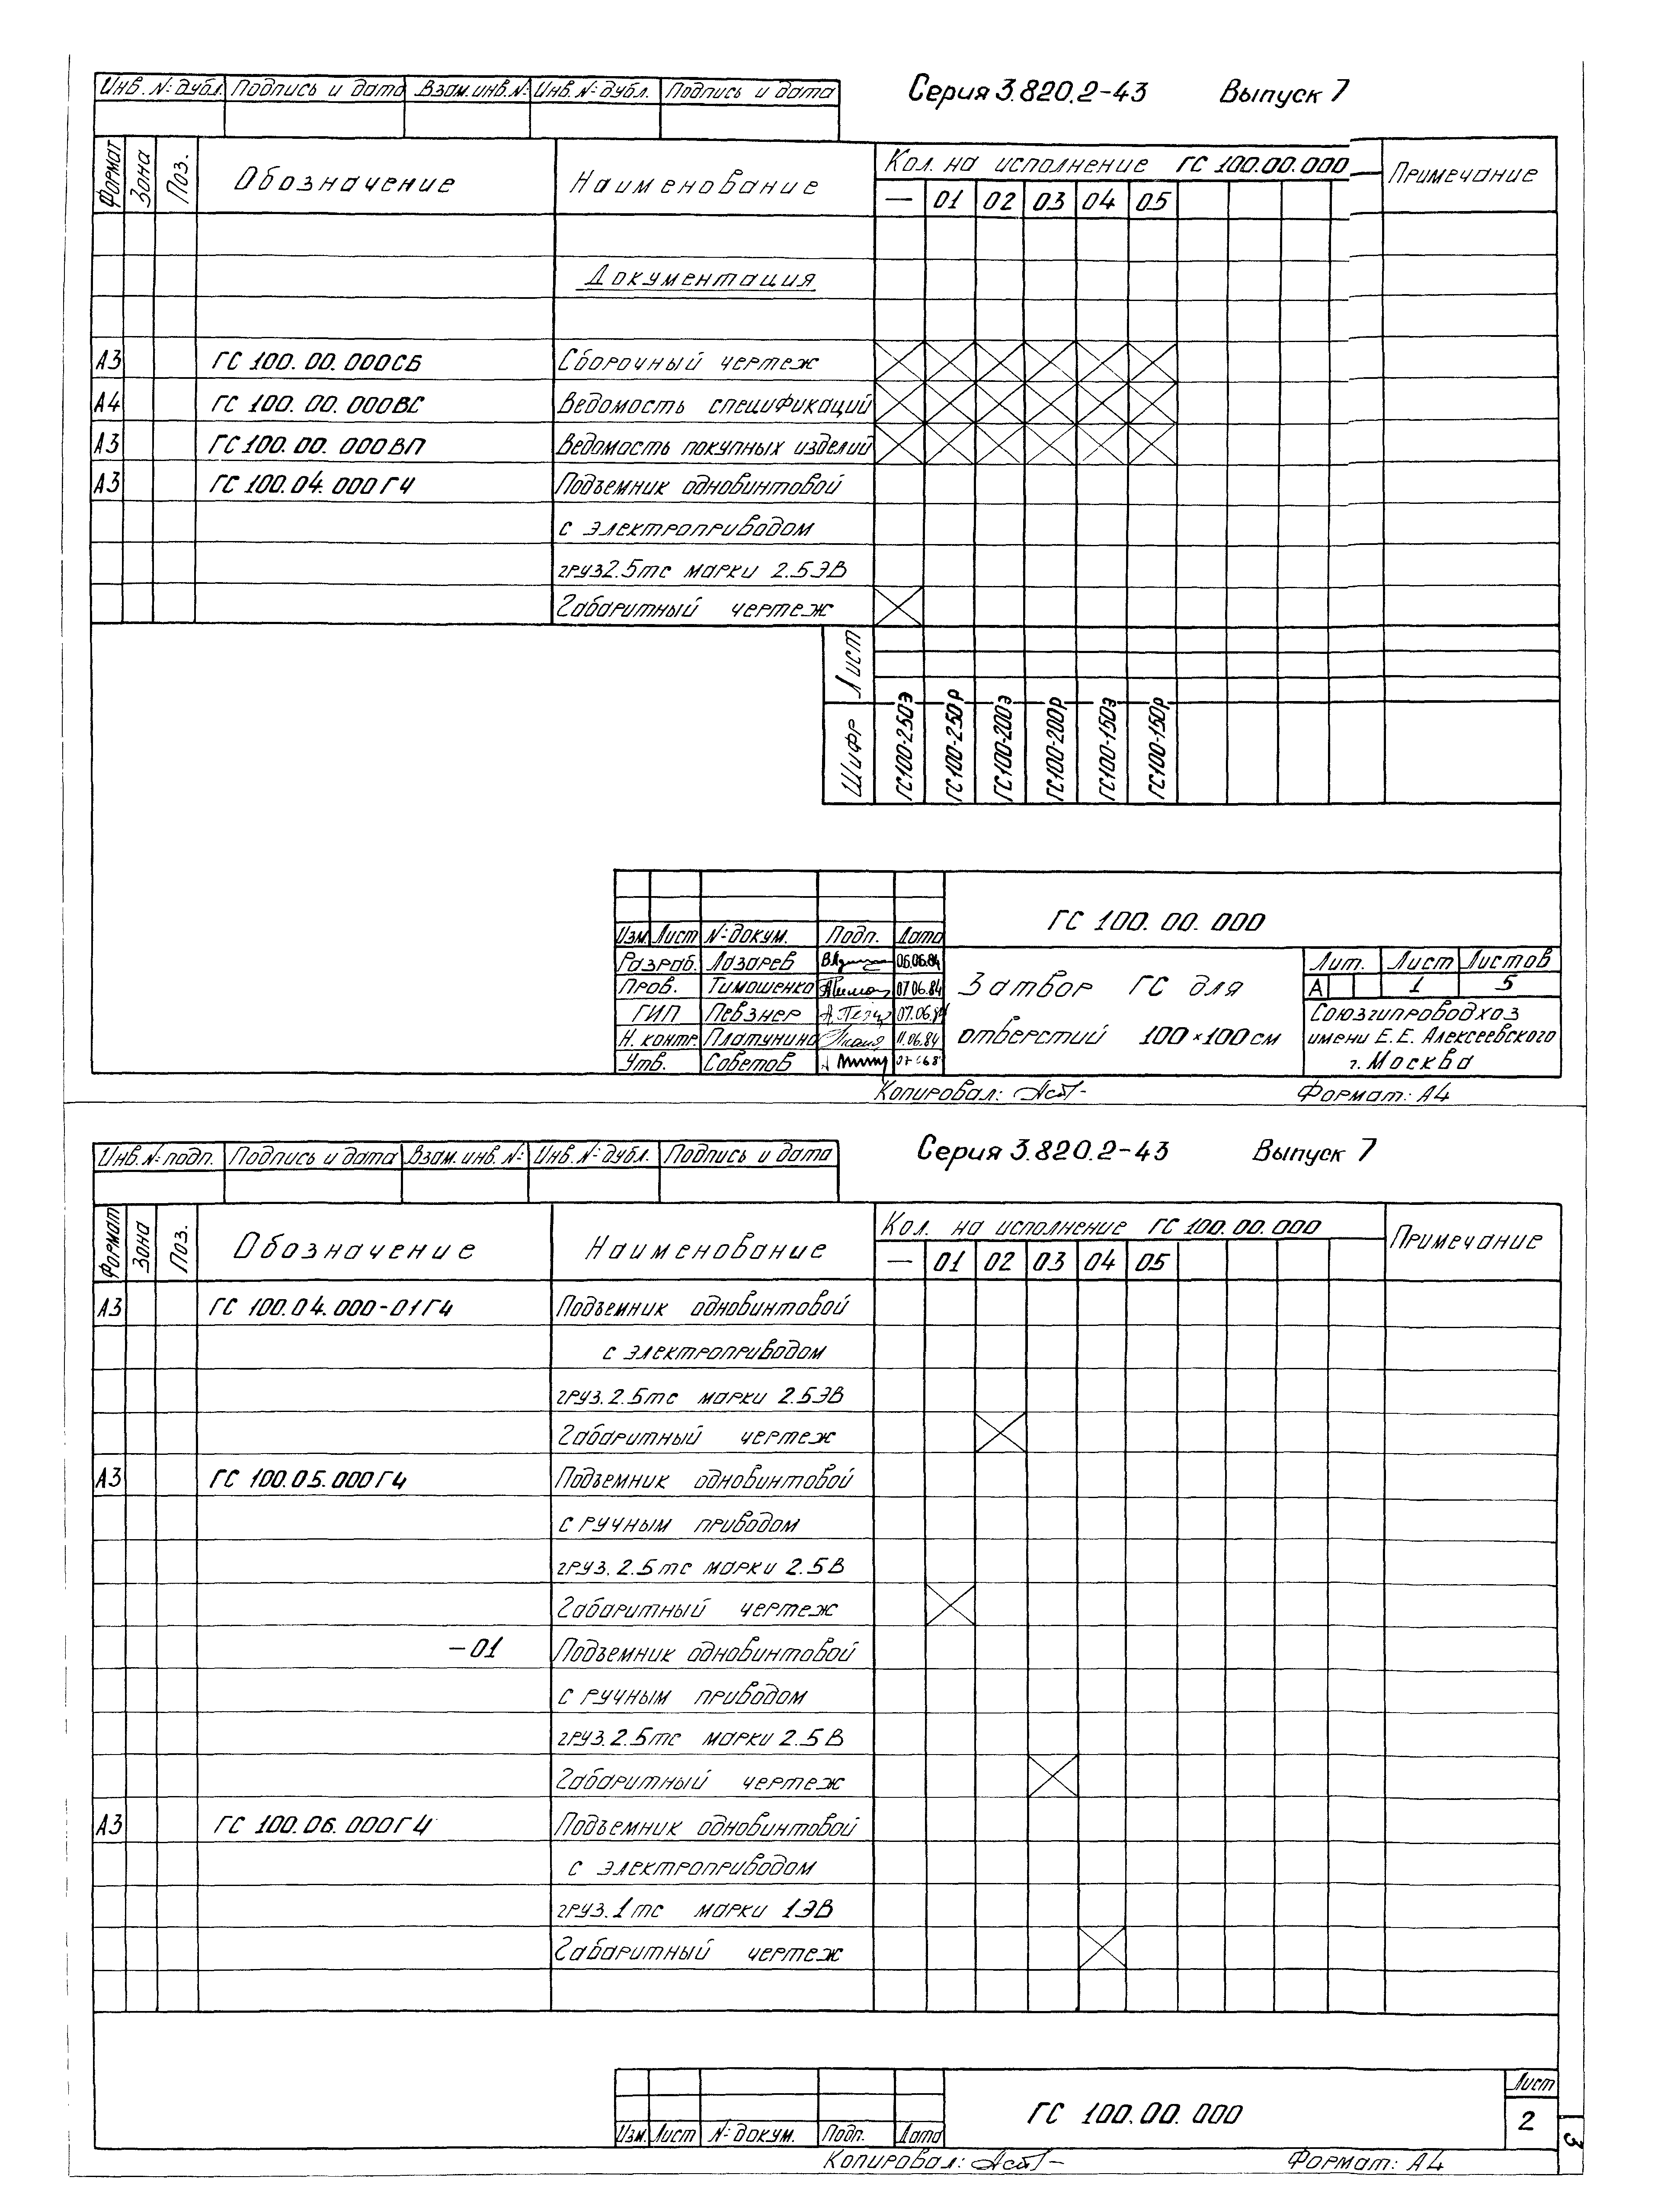 Серия 3.820.2-43 Выпуск 7
Инв. №: дубл. Подпись и дата Взам.инв.№: Инв. №: дубл. Подпись и дата
Формат Зона Поз. Обозначение Наименование Кол. на исполнение ГС 100.00.000 Примечание
— 01 02 03 04 05
Документация
А3 ГС 100.00.000СБ Сборочный чертеж
А4 ГС 100.00.000ВС Ведомость спецификаций
А3 ГС 100.00.000ВП Ведомость покупных изделий
А3 ГС 100.04.000ГЧ Подъемник одновинтовой
с электроприводом
груз 2.5тс марки 2.5ЭВ
Габаритный чертеж
Лист
Шифр ГС100-250Э ГС100-250Р ГС100-200Э ГС100-200Р ГС100-150Э ГС100-150Р
ГС 100.00.000
Изм. Лист №: докум. Подп. Дата
Разраб. Лазарев 06.06.84
Пров. Тимошенко 07.06.84
ГИП Певзнер 07.06.84
Н. контр. Платунина 11.06.84
Утв. Советов
Затвор ГС для
отверстий 100×100см
Лит. Лист Листов
А 1 5
Союзгипроводхоз
имени Е.Е. Алексеевского
г. Москва
Копировал: Формат: А4
Серия 3.820.2-43 Выпуск 7
Инв. №: подп. Подпись и дата Взам. инв. №: Инв. №: дубл. Подпись и дата
Формат Зона Поз. Обозначение Наименование Кол. на исполнение ГС 100.00.000 Примечание
— 01 02 03 04 05
А3 ГС 100.04.000-01ГЧ Подъемник одновинтовой
с электроприводом
груз. 2.5тс марки 2.5ЭВ
Габаритный чертеж
А3 ГС 100.05.000ГЧ Подъемник одновинтовой
с ручным приводом
груз. 2.5тс марки 2.5В
Габаритный чертеж
-01 Подъемник одновинтовой
с ручным приводом
груз. 2.5тс марки 2.5В
Габаритный чертеж
А3 ГС 100.06.000ГЧ Подъемник одновинтовой
с электроприводом
груз. 1тс марки 1ЭВ
Габаритный чертеж
ГС 100.00.000
Лист
2
Изм. Лист №: докум. Подп. Дата
3
Копировал: Формат: А4